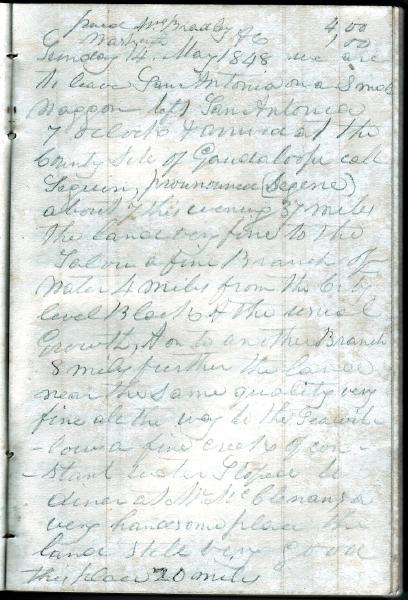 paid Mrs Bradley 4,00
Washing &c 1,00
Sunday 14, May 1848 we are
to leave San Antonia on a Small
Waggon left San Antonia
7 oclock & arrived at the
County Site of Gaudaloope call
Seguin, pronounced (Segene)
about 7 this evening 37 miles
the lande very fine to the
Salou a fine Branch of
Water 4 miles from the City
level Black & the usual
Growth, & on to another Branch
8 mily further the lande
near the same quality very
fine all the way to the
-low a fine creek of con-
-stant water Stoped to
diner at Mr McClenans a
very handsome place the
lande stile very good
this place 20 mile